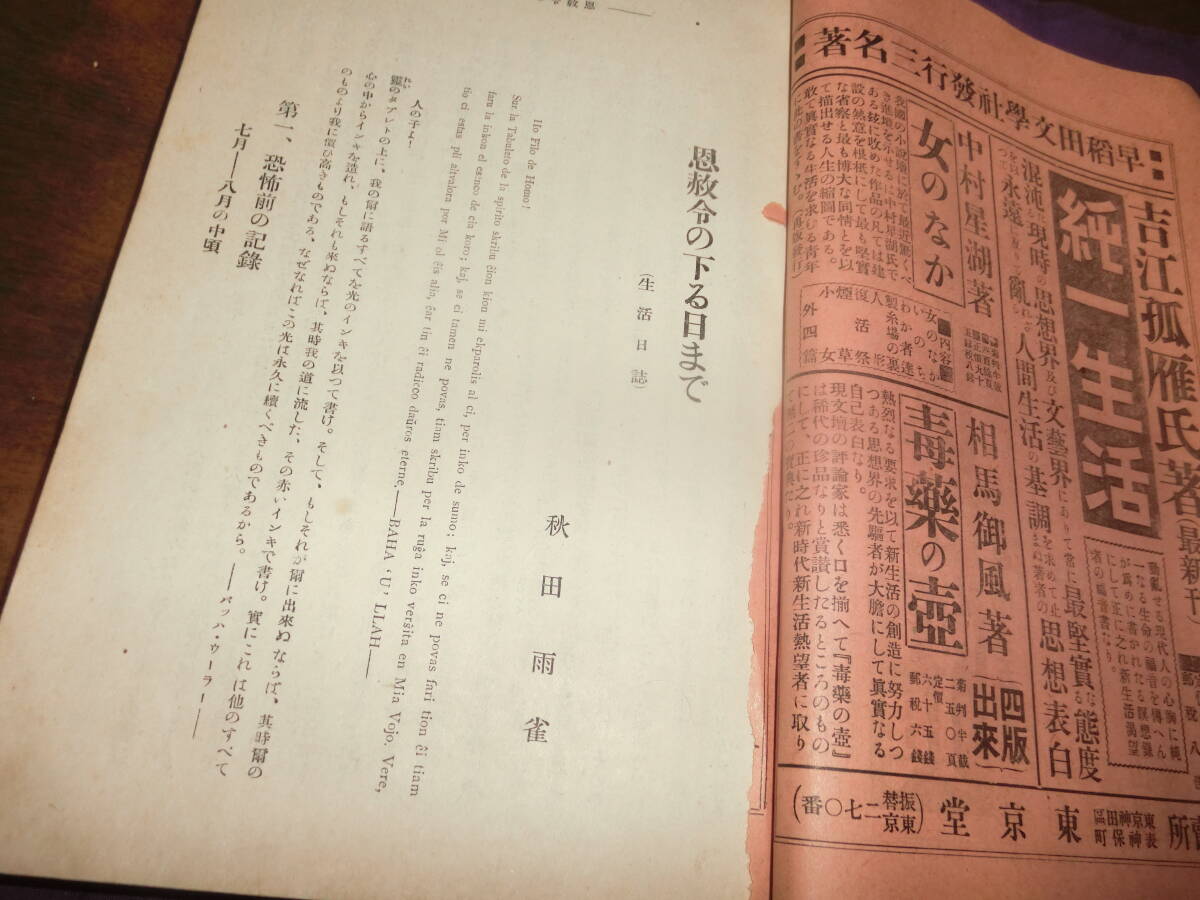 早稻田文學社發行三名著
吉江孤雁氏著(最新刊)
純一生活
混沌たる現時の思想界及び文藝界にありて常に最堅實なる態度
人間生活の基調
著者の思想表白
中村星湖著
女のなか
我國の小説壇に於て最近驚くべ
き進境を示せる中村星湖氏で
ある玆に收めた作品の凡ては建
設の熱意を根柢にして最も堅實
な省察と最も博大な同情とを以
て描出せる人生の縮圖である。
敢て眞實なる生活を求むる青年
内容
女のなか
わか者達
製糸場の裏
人形
復活祭
煙草
小女
外四篇
相馬御風著
毒藥の壺
四版
出來
菊判半截
二五〇頁
定價
六十五錢
郵税六錢
熱烈なる要求を以て新生活の創造に努力しつ
つある思想界の先驅者が大膽にして眞實なる
自己表白なり。
現文壇の評論家は悉く口を揃へて『毒藥の壺』
は稀代の珍品なりと賞讃したるところのもの
にして、正に之れ新時代新生活熱望者に取り
東京神田
表神保町
東京堂
(振替東京二七〇番)
恩赦令の下る日まで
(生活日誌)
秋田雨雀
Ho Filo de Homo!
Sur la Tabuleto de la spirito skribu ĉion kion mi ekparolis al ci, per inko de sumo; kaj, se ci ne povas fari tion ĉi tiam
faru la inkon el esinco de cia koro; kaj, se ci tamen ne povas, tiam skribu per la ruĝa inko verŝita en Mia Vojo. Vere,
tio ci estas pli altvalora por Mi ol ĉis alia, ĉar tin ĉi radico daŭros eterne.—BAHA 'U' LLAH—
人の子よ!
靈のタブレトの上に、我の爾に語るすべてを光のインキを以つて書け。そして、もしそれが爾に出來ぬならば、其時爾の
心の中からインキを造れ、もしそれも來ぬならば、其時我の道に流した、その赤いインキで書け。實にこれは他のすべて
のものより我に價ひ高きものである、なぜなればこの光は永久に續くべきものであるから。——バッハ・ウーラー——
第一、恐怖前の記錄
七月—八月の中頃